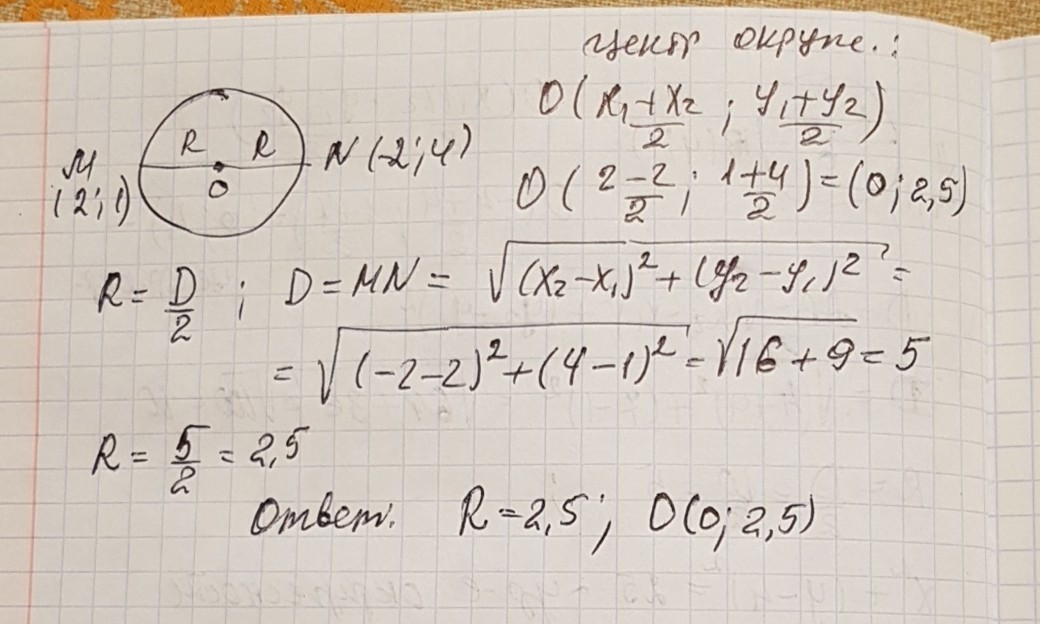 центр окружн.:
O( x₁+x₂/2 ; y₁+y₂/2 )
M
(2;1)
R R
O
N (-2;4)
O( 2-2/2 ; 1+4/2 ) = (0; 2,5)
R = D/2 ; D = MN = √((x₂-x₁)² + (y₂-y₁)²) =
= √((-2-2)² + (4-1)²) = √(16+9) = 5
R = 5/2 = 2,5
Ответ: R = 2,5; O(0; 2,5)